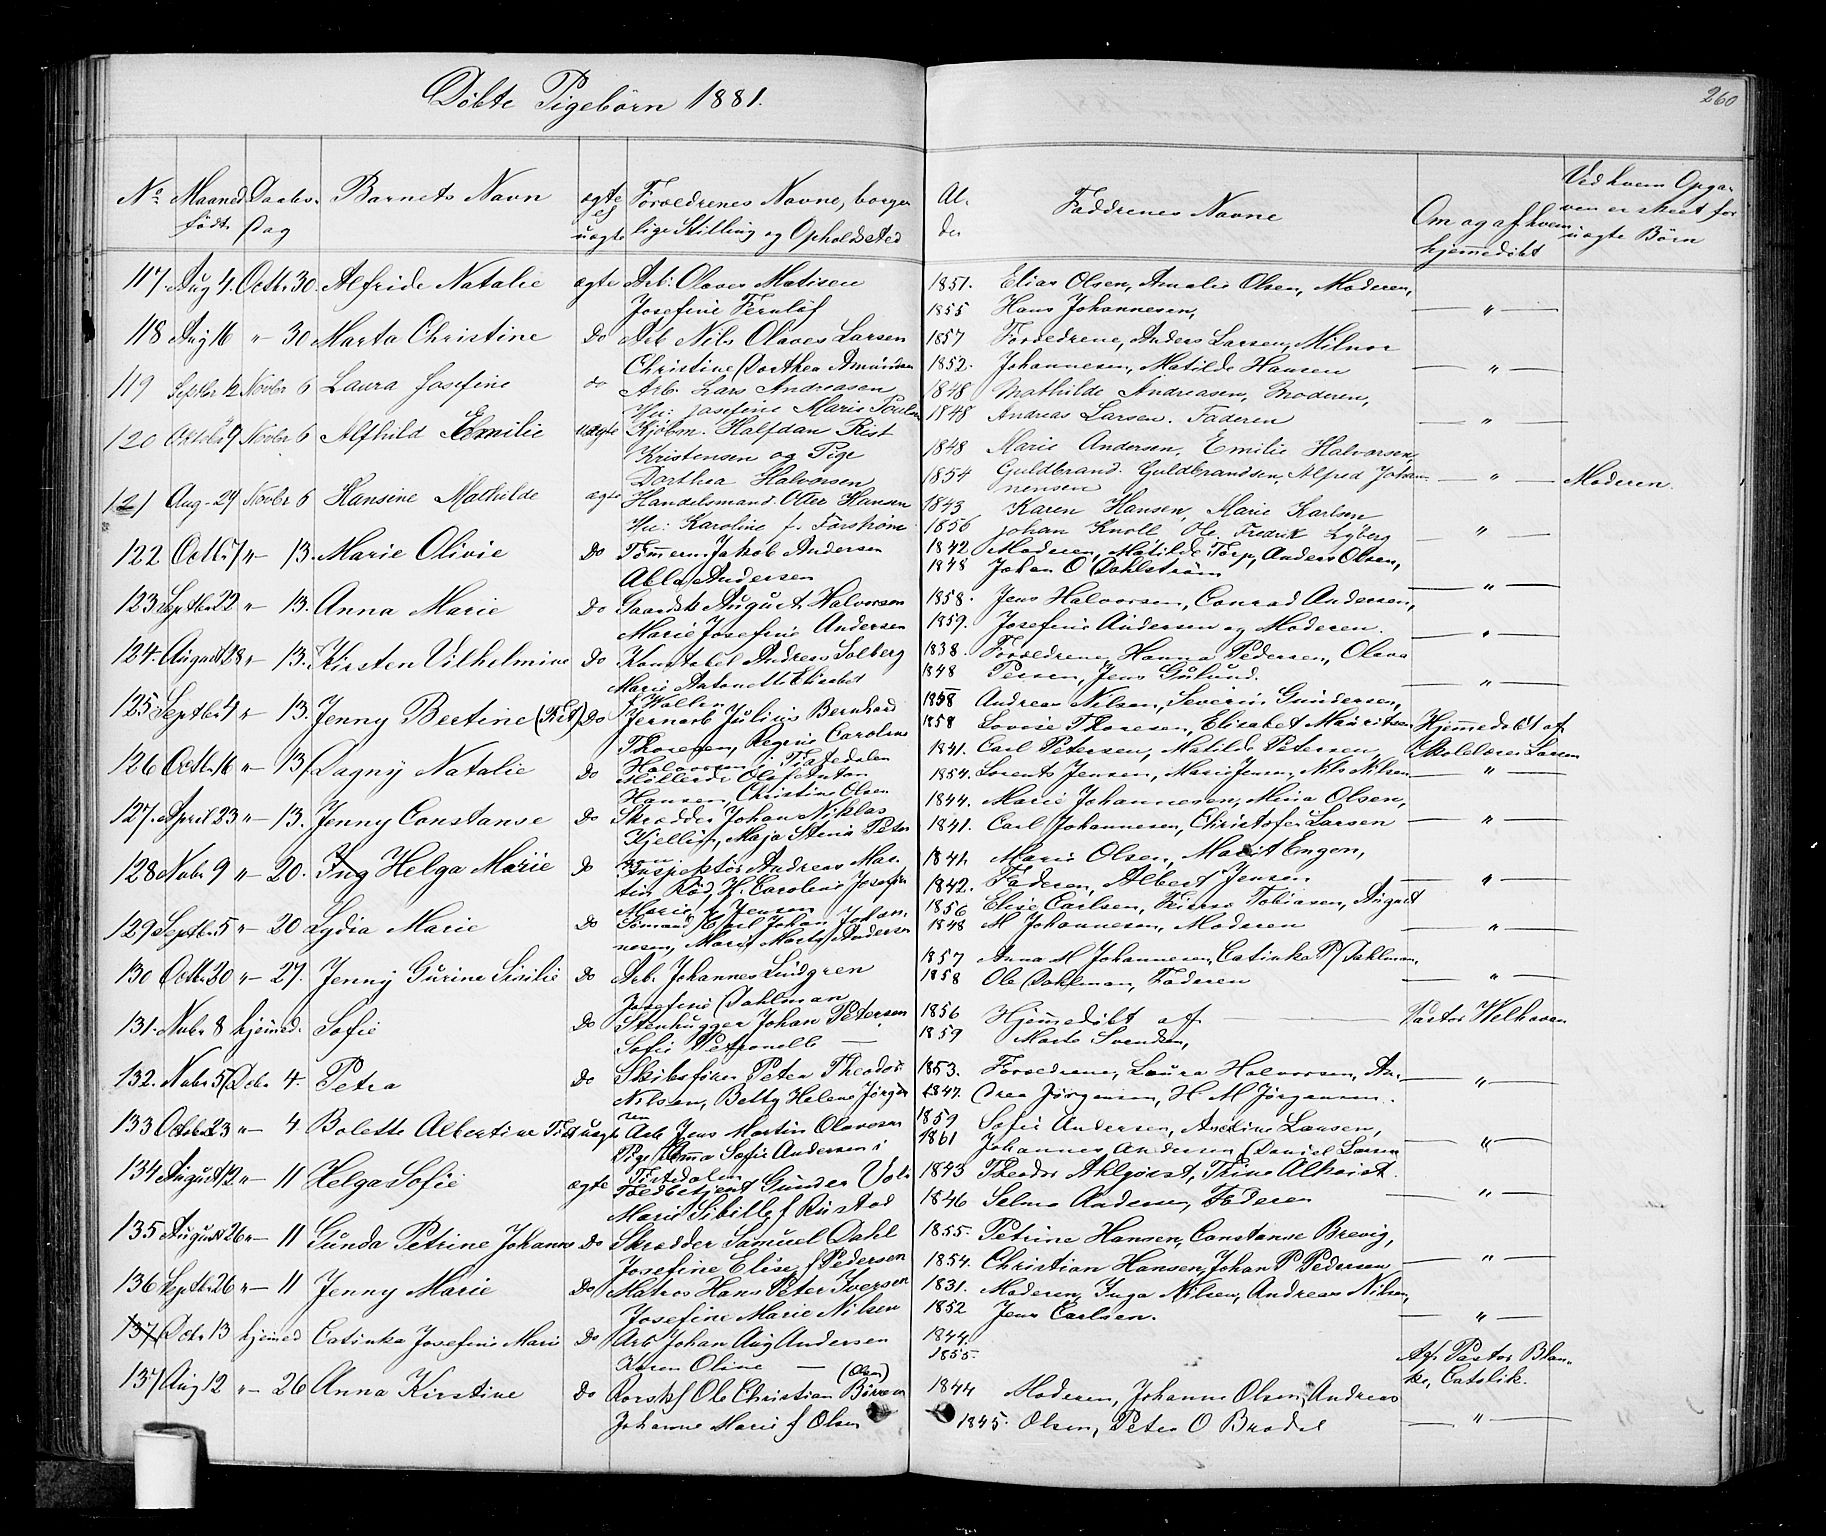 Döbte Pigebörn 1881.
260
No Maaned født Daabs-Dag Barnets Navn ægte el uægte Forældrenes Navne, borgerlige Stilling og Opholdssted Alder Faddrenes Navne Om og af hvem hjemmedöbt Ved hvem Opgaven er skeet for uægte Börn
117 Aug 4. Octbr 30. Alfride Natalie ægte Arb: Olaves Matisen 1851. Elias Olsen, Amalie Olsen, Moderen,
Josefine Fernlöf 1855 Hans Johannesen, — " —
118 Aug 16 " 30 Marta Christine Do Arb Nils Olaves Larsen 1857 Forældrene, Anders Larsen, Milnor
Christine Dorthea Amundsen 1852. Johannesen, Matilde Hansen — " —
119 Septbr 12 Novbr 6 Laura Josefine do Arb. Lars Andreasen 1848 Mathilde Andreasen, Moderen,
Hu: Josefine Marie Poulsen 1848 Andreas Larsen. Faderen — " —
120 Oktobr 9 Novbr 6 Alfhild Emilie uægte Kjöbm. Halfdan Rist
Kristensen og Pige 1848 Marie Andersen, Emilie Halvorsen,
Dorthea Halvorsen 1854 Guldbrand Guldbrandsen, Alfred Johannensen — " — Moderen.
121 Aug. 29 Novbr 6 Hansine Mathilde ægte Handelsmand. Otter Hansen 1843 Karen Hansen, Marie Karlsen
Hu: Karoline f. Forström 1856 Johan Knoll, Ole Fredrik Lyberg "
122 Octbr 7 " 13. Marie Olivie Do Tömerm. Jakob Andersen 1842 Moderen, Matilde Torp, Anders Olsen,
Abla Andersen 1848 Johan O Dahlström — " —
123 Septbr 22 " 13. Anna Marie Do Gaardsk. August Halvorsen 1858. Jens Halvorsen, Conrad Andersen,
Marie Josefine Andersen 1859. Josefine Andersen og Moderen. — " —
124. August 28 " 13. Kirsten Vilhelmine Do Konstabel Andreas Solberg 1838. Forældrene, Hanna Pedersen, Olava
Marie Antonette Elisabet 1848 Persen, Jens Gulund. — " —
f Wallen
125 Septbr 4 " 13. Jenny Bertine Do Jernarb Julius Bernhard 1858 Andreas Nilsen, Severin Gundersen,
Thoresen, Regine Caroline 1858 Lovise Thoresen, Elisabet Mauritsen Hjemmedöbt af
Halvorsen i Tistedalen Skolelærer Larsen
126 Octbr 16 " 13 Dagny Natalie Do Möllerdr. Olaf Anton 1841. Carl Petersen, Matilde Petersen
Hansen, Christine Olsen 1854. Lorents Jensen, Marie Jensen, Nils Nilsen — " —
127. April 23 " 13. Jenny Constanse Do Skrædder Johan Niklas 1844. Marie Johannesen, Mina Olsen,
Kjellin, Maja Stina Peterson 1841. Carl Johannesen, Christofer Larsen — " —
128 Nobr 9 " 20. Helga Marie Do Inspektör Andreas Martin Röd, H. Caroline Josefine 1841. Marie Olsen, Marit Emgen,
Marie f Jensen 1842. Faderen, Albert Jensen — " —
129 Septbr 5 " 20 Lydia Marie Do Sömand Carl Johan Johannesen, Marie Marta Andersen 1856 Elise Carlsen, Tobiasen, August
1848 M Johannesen, Moderen — " —
130 Octbr 20 " 27. Jenny Gurine Sisilie Do Arb. Johannes Lindgren 1857 Anna M Johannesen, Catinka P Dahlman,
Josefine Dahlman 1858 Ole Dahlman, Faderen — " —
131. Nobr 8 hjemmed. Sofie Do Stenhugger Johan Petersen 1856 Hjemmedöbt af — Pastor Welhaven
Sofie Petronelle — 1859 Marte Svendsen,
132. Nobr 5 Debr 4. Petra Do Skibsförer Peter Theodor 1853. Forældrene, Laura Halvorsen, An-
Nilsen, Betty Helene Jörgensen 1847. drea Jörgensen, H. M Jörgensen. — " —
133 October 23 " 4. Bolette Albertine uægte Arb Jens Martin Olavesen 1859 Sofie Andersen, Aneline Larsen,
Pige Emma Sofie Andersen i 1861 Johannes Andersen Daniel Larsen — " —
Tistedalen
134 August 12 " 11 Helga Sofie ægte Toldbetjent Gunder 1843 Theodor Ahlqvist, Trine Alkvist.
Marie Sibille f Rustad 1846 Selma Andersen, Faderen — " —
135 August 26 " 11 Gunda Petrine Johanne Do Skrædder Samuel Dahl 1855. Petrine Hansen, Constanse Brevig,
Josefine Elise f Pedersen 1854. Christian Hansen, Johan P Pedersen — " —
136 Septbr 26 " 11 Jenny Marie Do Matros Hans Peter Iversen 1831. Moderen, Inga Nilsen, Andreas Nilsen,
Josefine Marie Nilsen 1852 Jens Carlsen. — " —
137 Octbr 13 hjemmed Catinka Josefine Marie Do Arb Johan Aug Andersen 1844.
Karen Oline — 1855. Af Pastor Blanke, Catolik.
137 Aug 12 " 26 Anna Kirstine Do Ole Christian Börresen (Olsen) 1844 Moderen, Johanne Olsen, Andreas
Johanne Marie f Olsen 1845. Olsen, Peter O Brodal — " —